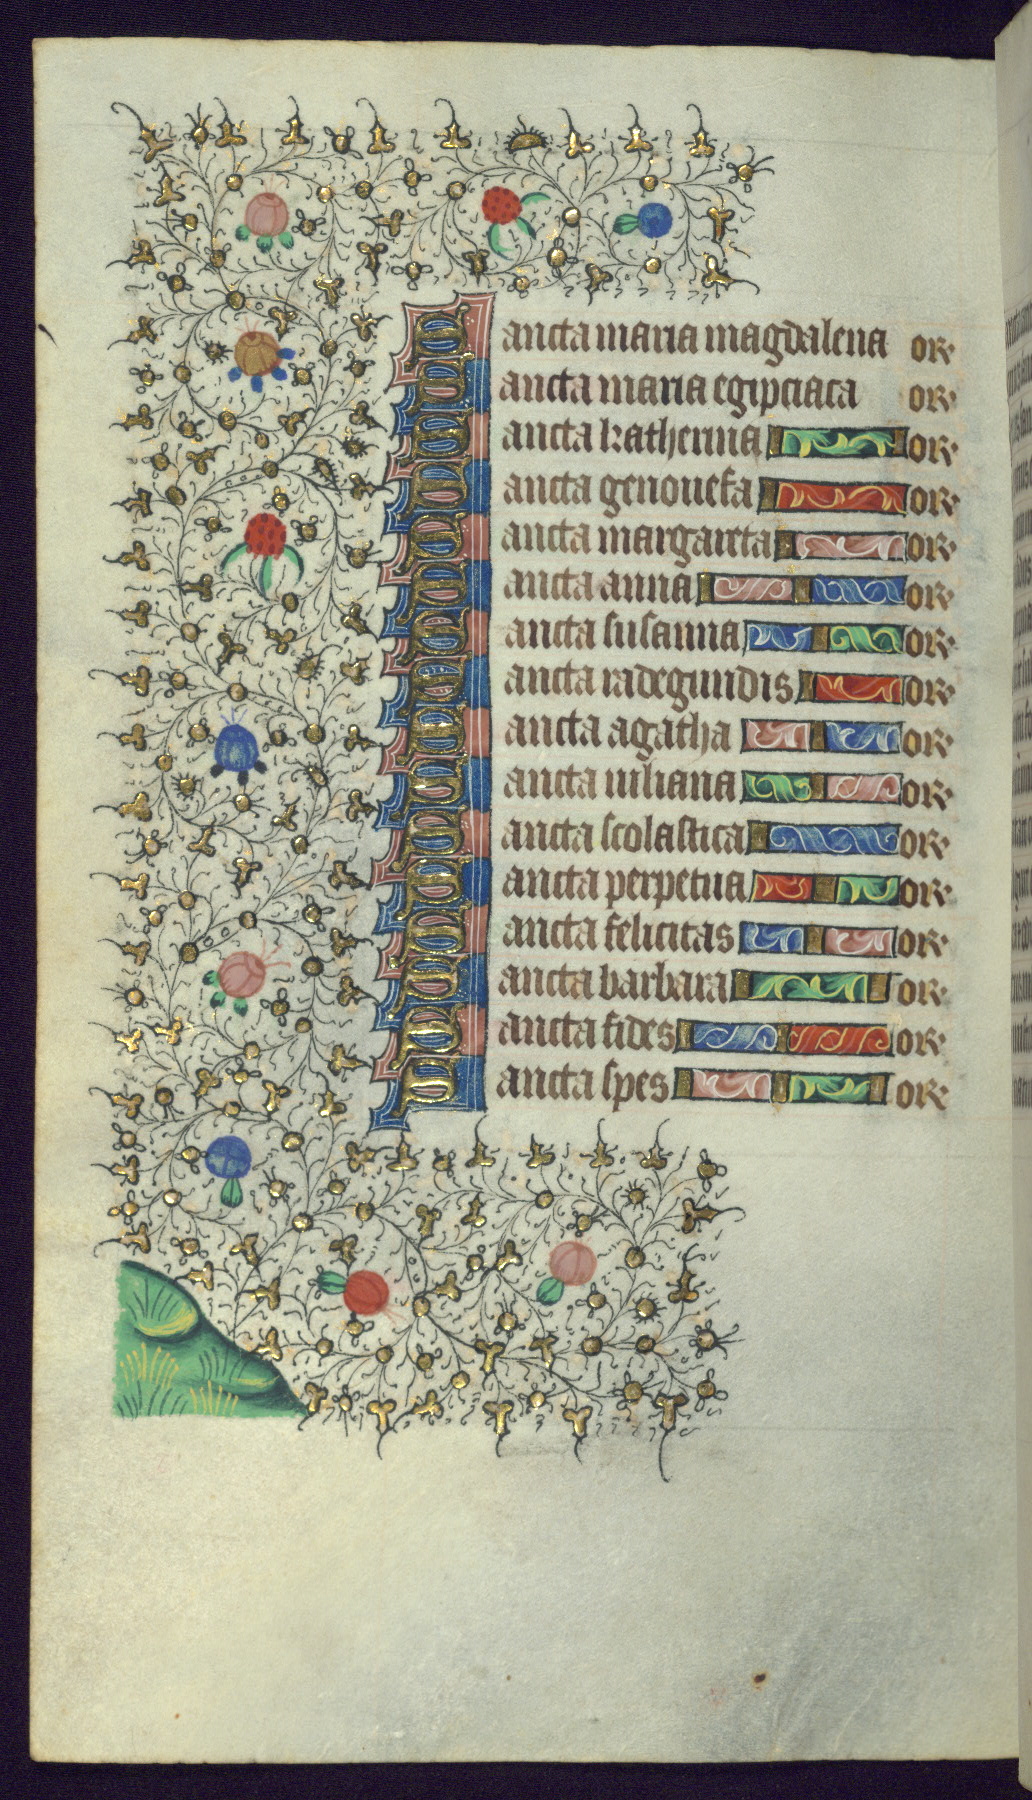 Sancta maria magdalena or
Sancta maria egipciaca or
Sancta katherina or
Sancta genouefa or
Sancta margareta or
Sancta anna or
Sancta susanna or
Sancta radegundis or
Sancta agatha or
Sancta iuliana or
Sancta scolastica or
Sancta perpetua or
Sancta felicitas or
Sancta barbara or
Sancta fides or
Sancta spes or